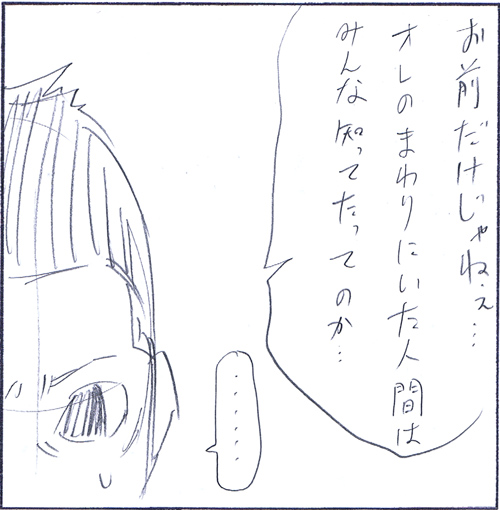 お前だけじゃねぇ…
オレのまわりにいた人間は
みんな知ってたってのか…
………